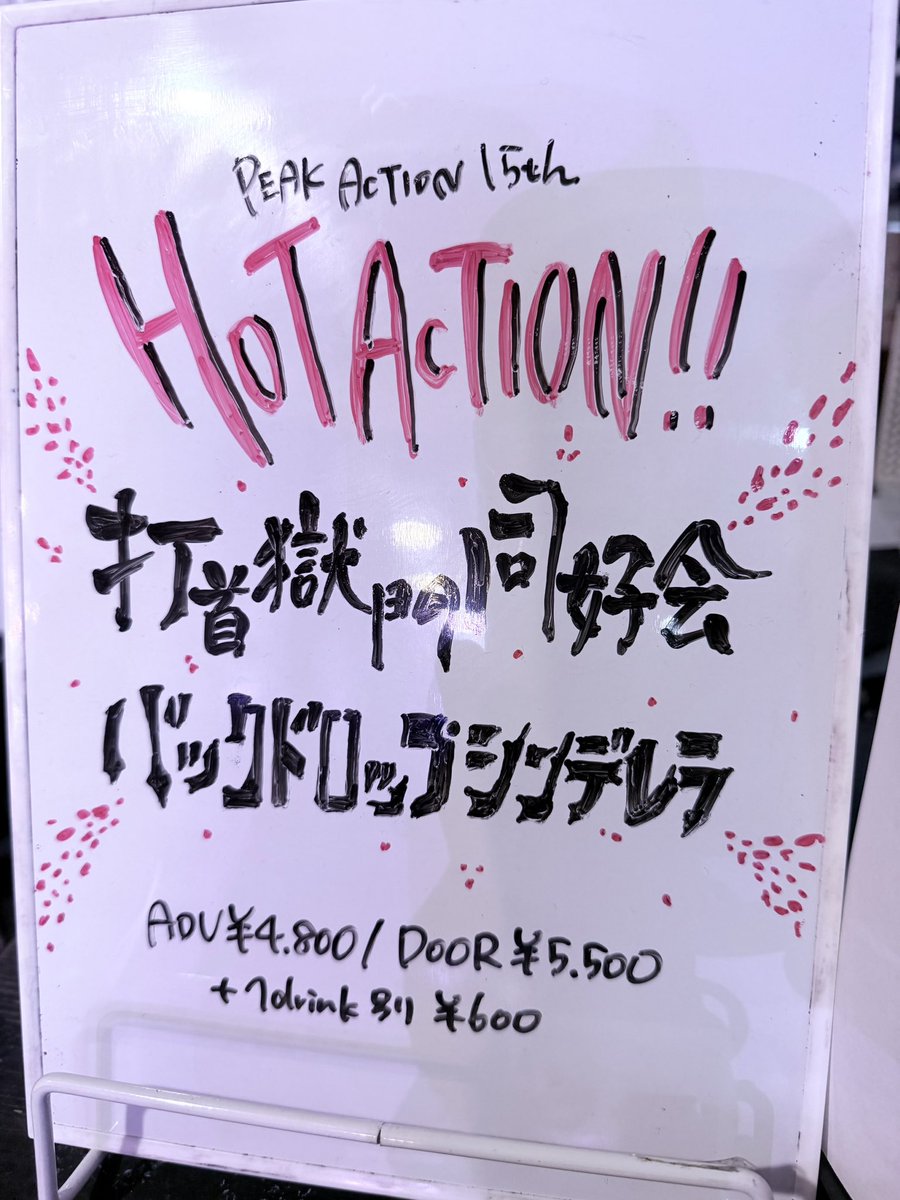 PEAK ACTION 15th
HOT ACTION!!
打首獄門同好会
バックドロップシンデレラ
ADV ¥4.800 / DOOR ¥5.500
+ 1drink 別 ¥600